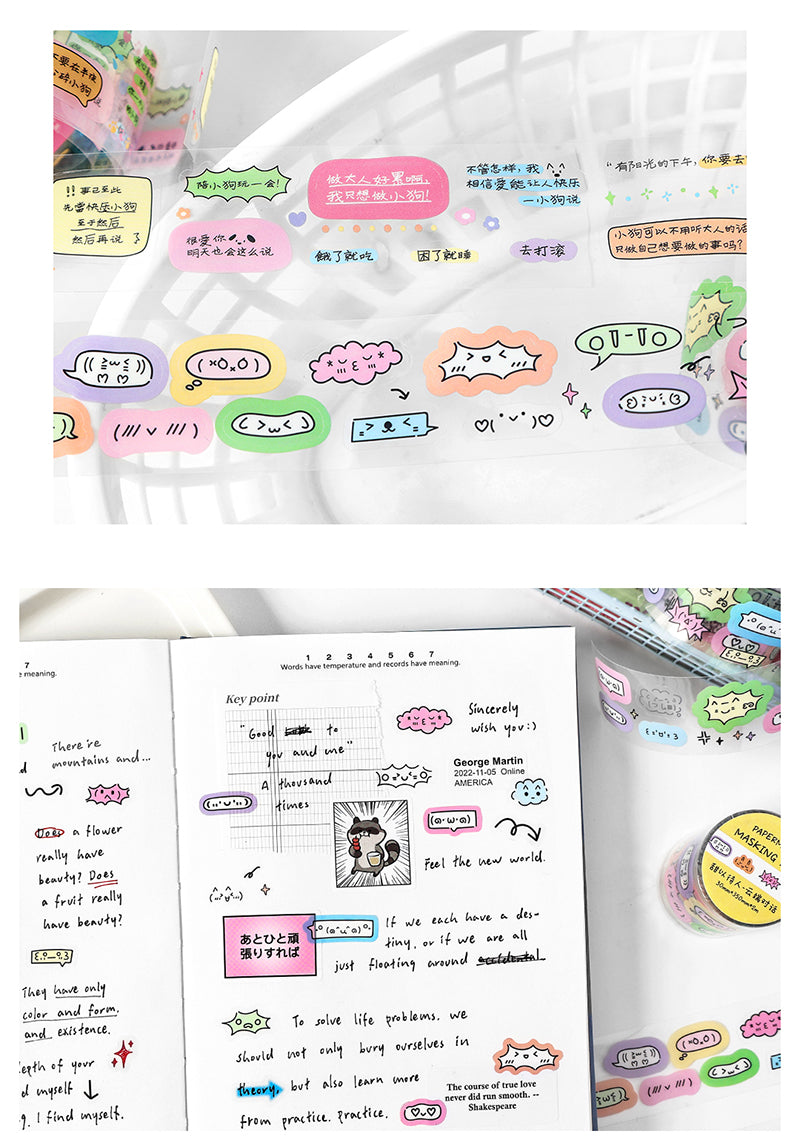 要在半夜
碎小狗
陪小狗玩一会!
做大人好累啊,
我只想做小狗!
不管怎样,我
相信爱能让人快乐
—小狗说
“有阳光的下午,你要去
!! 事已至此
先当快乐小狗
至于然后
然后再说
很爱你
明天也会这么说
饿了就吃
困了就睡
去打滚
小狗可以不用听大人的话
只做自己想要做的事吗?
7
e meaning.
There're
mountains and...
Does a flower
really have
beauty? Does
a fruit really
have beauty?
They have only
color and form,
and existence.
epth of your
d myself
g. I find myself.
1 2 3 4 5 6 7
Words have temperature and records have meaning.
Key point
"Good to
you and me"
A thousand
times
Sincerely
wish you:)
George Martin
2022-11-05 Online
AMERICA
Feel the new world.
あとひと頑
張りすれば
If we each have a des-
tiny, or if we are all
just floating around accidental
To solve life problems. we
should not only bury ourselves in
theory, but also learn more
from practice. practice.
The course of true love
never did run smooth. --
Shakespeare
PAPERM
MASKING
甜以待人·云端对话
30mm*350mm*2m